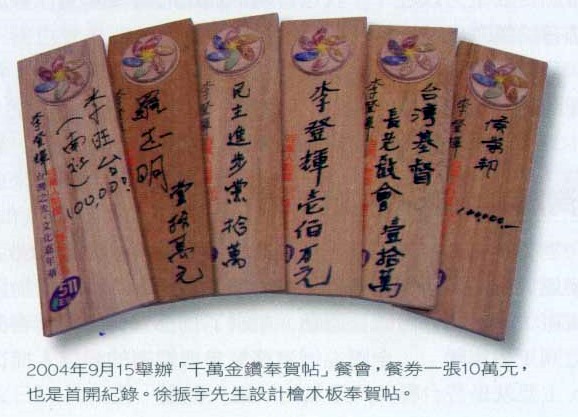 李旺台
(南社)
100,000.
李登輝 台灣之光‧文化嘉年華
511
羅志明
壹拾萬元
民主進步黨 拾萬
李登輝 壱佰万元
台灣基督
長老敎會 壹拾萬
李登輝
100,000.-
2004年9月15舉辦「千萬金鑽奉賀帖」餐會，餐券一張10萬元，
也是首開紀錄。徐振宇先生設計檜木板奉賀帖。